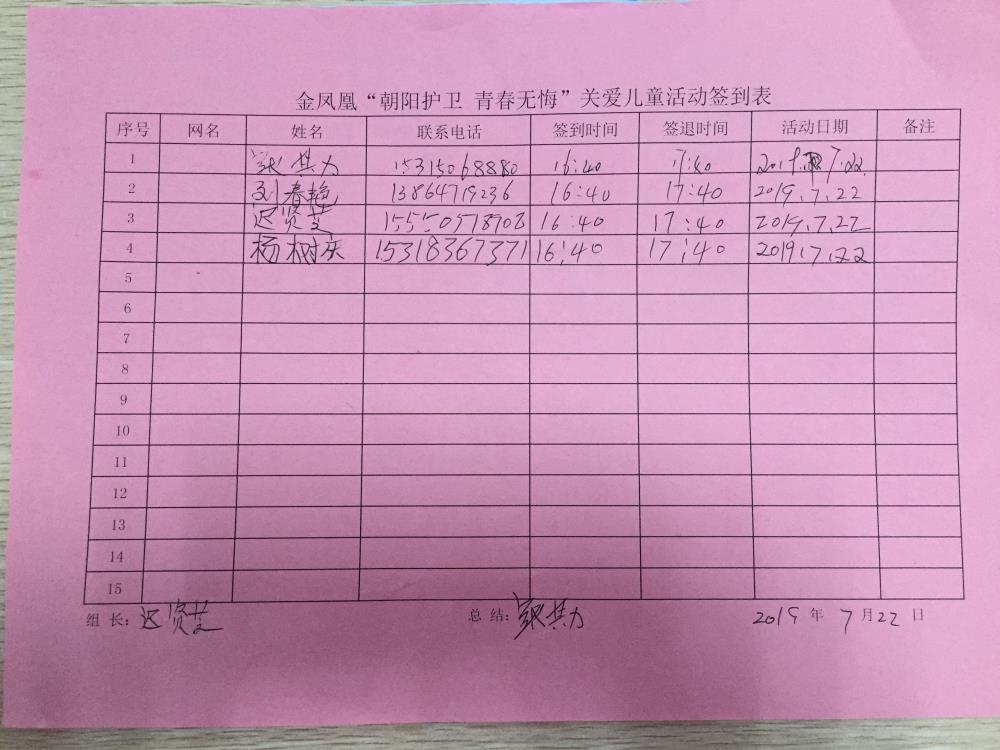 金凤凰“朝阳护卫 青春无悔”关爱儿童活动签到表
序号 网名 姓名 联系电话 签到时间 签退时间 活动日期 备注
1 张其力 15315068880 16:40 17:40 2019.7.22
2 刘春艳 13864719236 16:40 17:40 2019.7.22
3 迟贤芝 15550578908 16:40 17:40 2019.7.22
4 杨树庆 15318367371 16:40 17:40 2019.7.22
5
6
7
8
9
10
11
12
13
14
15
组 长：迟贤芝 总 结：张其力 2019 年 7 月 22 日